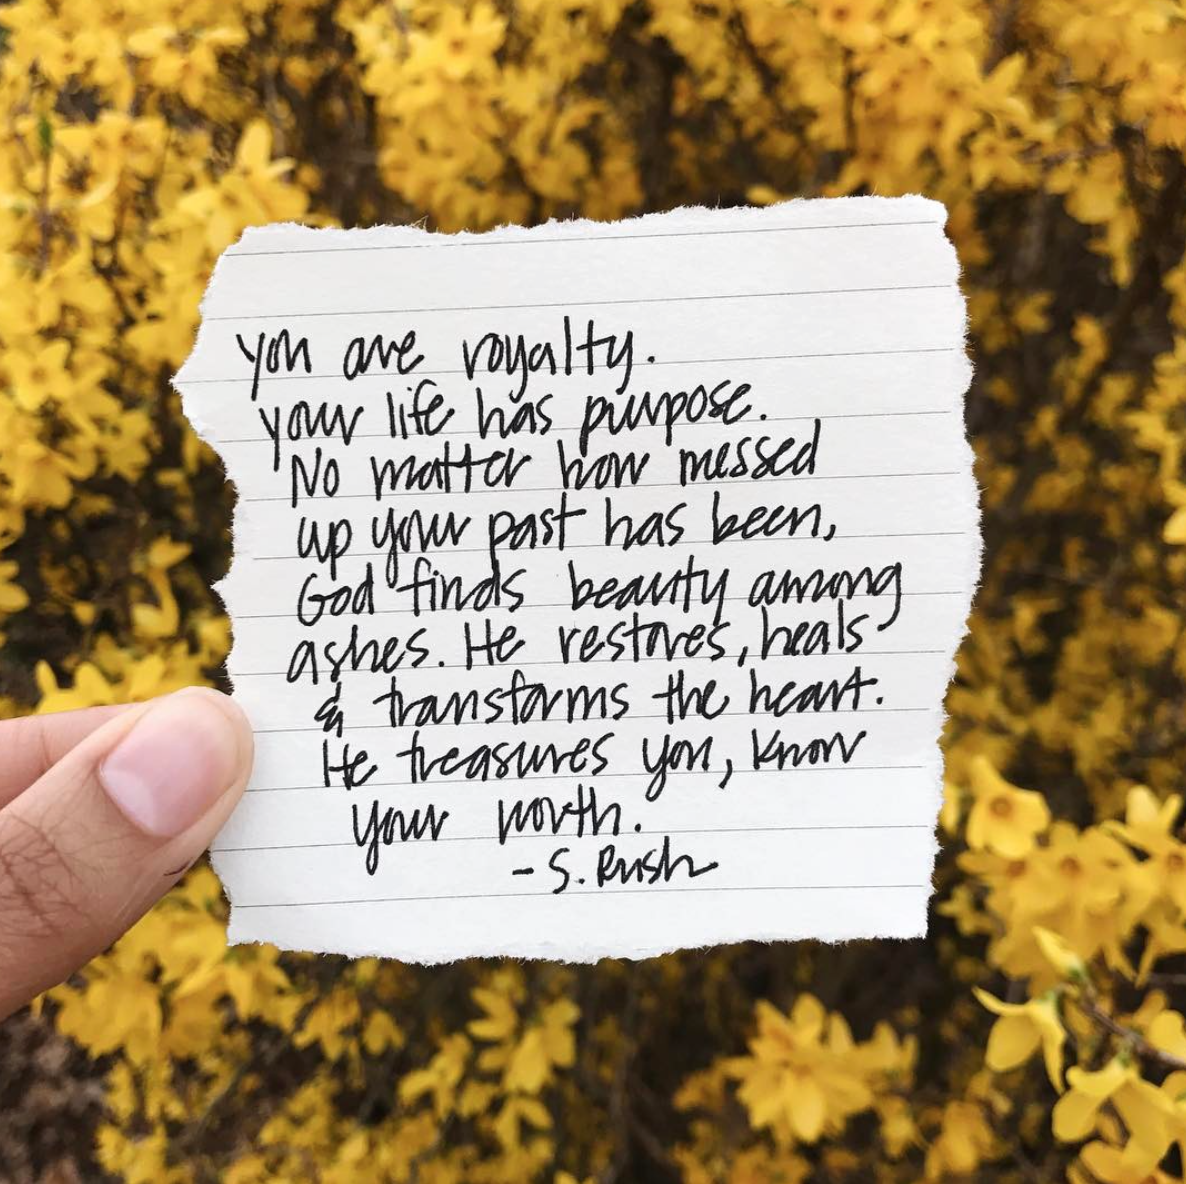 you are royalty.
your life has purpose.
No matter how messed
up your past has been,
God finds beauty among
ashes. He restores, heals
& transforms the heart.
He treasures you, know
your worth.
- S. Rush